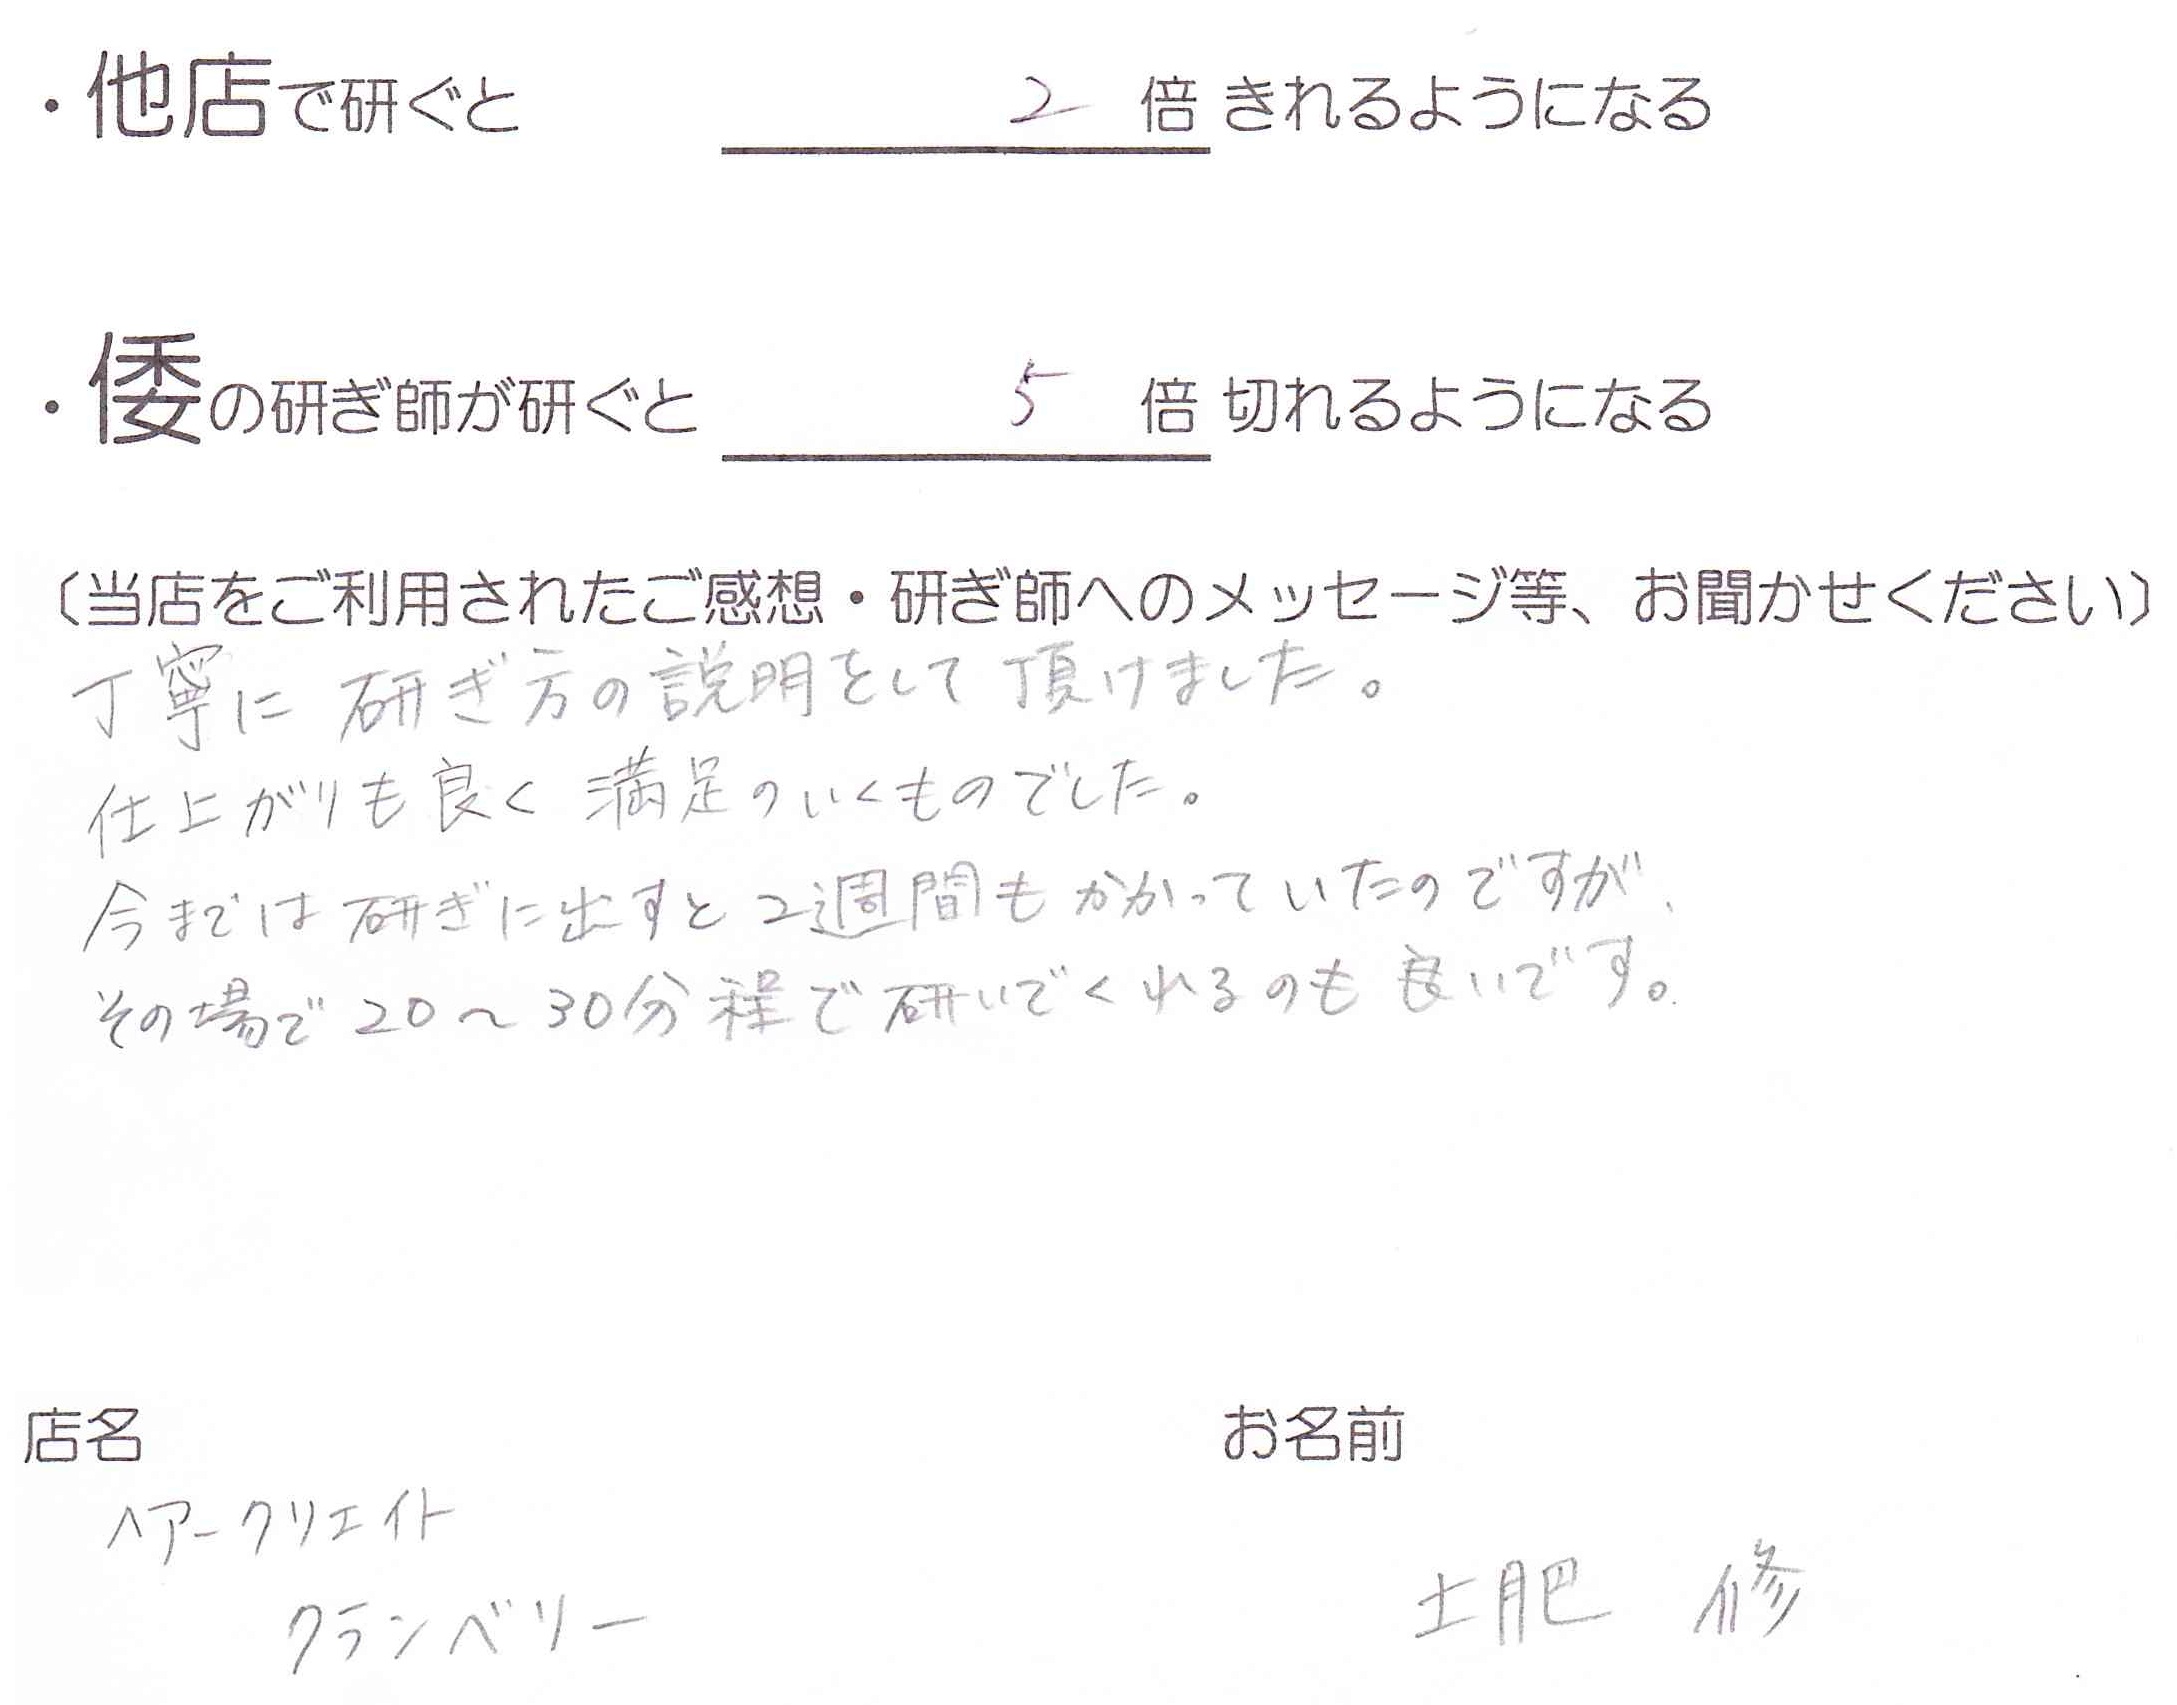 ・他店で研ぐと 2 倍 きれるようになる
・倭の研ぎ師が研ぐと 5 倍 切れるようになる
(当店をご利用されたご感想・研ぎ師へのメッセージ等、お聞かせください)
丁寧に 研ぎ方の説明をして 頂けました。
仕上がりも良く 満足のいくものでした。
今までは 研ぎに出すと 2週間も かかっていたのですが、
その場で 20〜30分 程で 研いでくれるのも 良いです。
店名 お名前
ヘアークリエイト
クランベリー 土肥 修